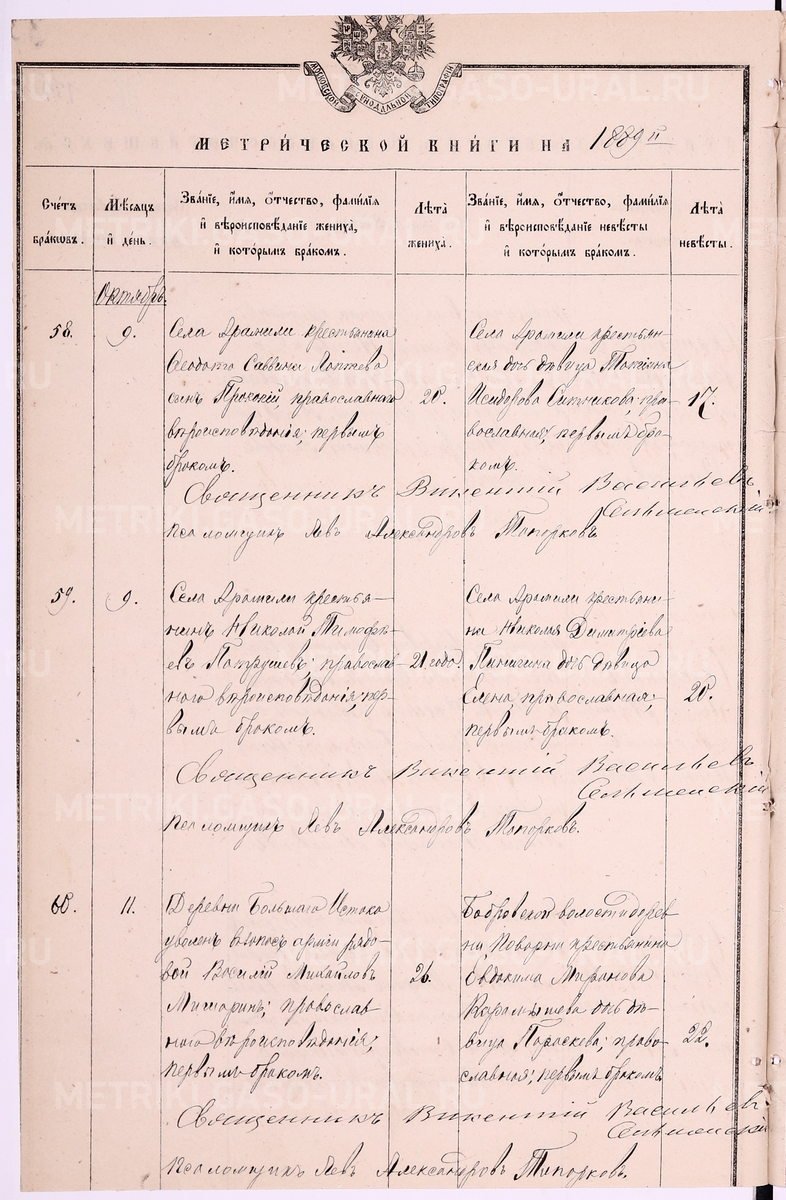 МОСКОВСКОЙ СѴНОДАЛЬНОЙ ТИПОГРАФІИ
МЕТРИ́ЧЕСКОЙ КНИ́ГИ НА 1889 й
Сче́тъ бра́кѡвъ.
Мѣ́сяцъ и҆ де́нь.
Зва́нїе, и҆́мя, ѻ҆́тчество, фами́лїѧ
и҆ вѣроисповѣ́данїе жениха̀,
и҆ кото́рымъ бра́комъ.
Лѣ́та жениха̀.
Зва́нїе, и҆́мя, ѻ҆́тчество, фами́лїѧ
и҆ вѣроисповѣ́данїе невѣ́сты
и҆ кото́рымъ бра́комъ.
Лѣ́та невѣ́сты.
Октябрь.
58.
9.
Села Арамили крестьянина
Ѳеодота Саввина Лаптева
сынъ Прокопій, православнаго
вѣроисповѣданія; первымъ
бракомъ.
20.
Села Арамили крестьян-
ская дочь дѣвица Татіана
Исидорова Ситникова, пра-
вославная; первымъ бра-
комъ.
17.
Священникъ Викентій Васильевъ
Сельменскій
псаломщикъ Левъ Александровъ Топорковъ
59.
9.
Села Арамили крестья-
нинъ Николай Тимофѣ-
евъ Патрушевъ; православ-
наго вѣроисповѣданія; пер-
вымъ бракомъ.
21 года.
Села Арамили крестьяни-
на Николая Димитріева
Пинигина дочь дѣвица
Елена, православная;
первымъ бракомъ.
20.
Священникъ Викентій Васильевъ
Сельменскій
псаломщикъ Левъ Александровъ Топорковъ.
60.
11.
Деревни Большаго Истока
уволен. въ запасъ арміи рядо-
вой Василій Михайловъ
Мишаринъ; православ-
наго вѣроисповѣданія;
первымъ бракомъ.
26.
Бобровской волости дерев-
ни Поварни крестьянина
Евдокима
Карамышева дочь дѣ-
вица Параскева; право-
славная; первымъ бракомъ
22.
Священникъ Викентій Васильевъ
Сельменскій
псаломщикъ Левъ Александровъ Топорковъ.
METRIKI.GASO-URAL.RU